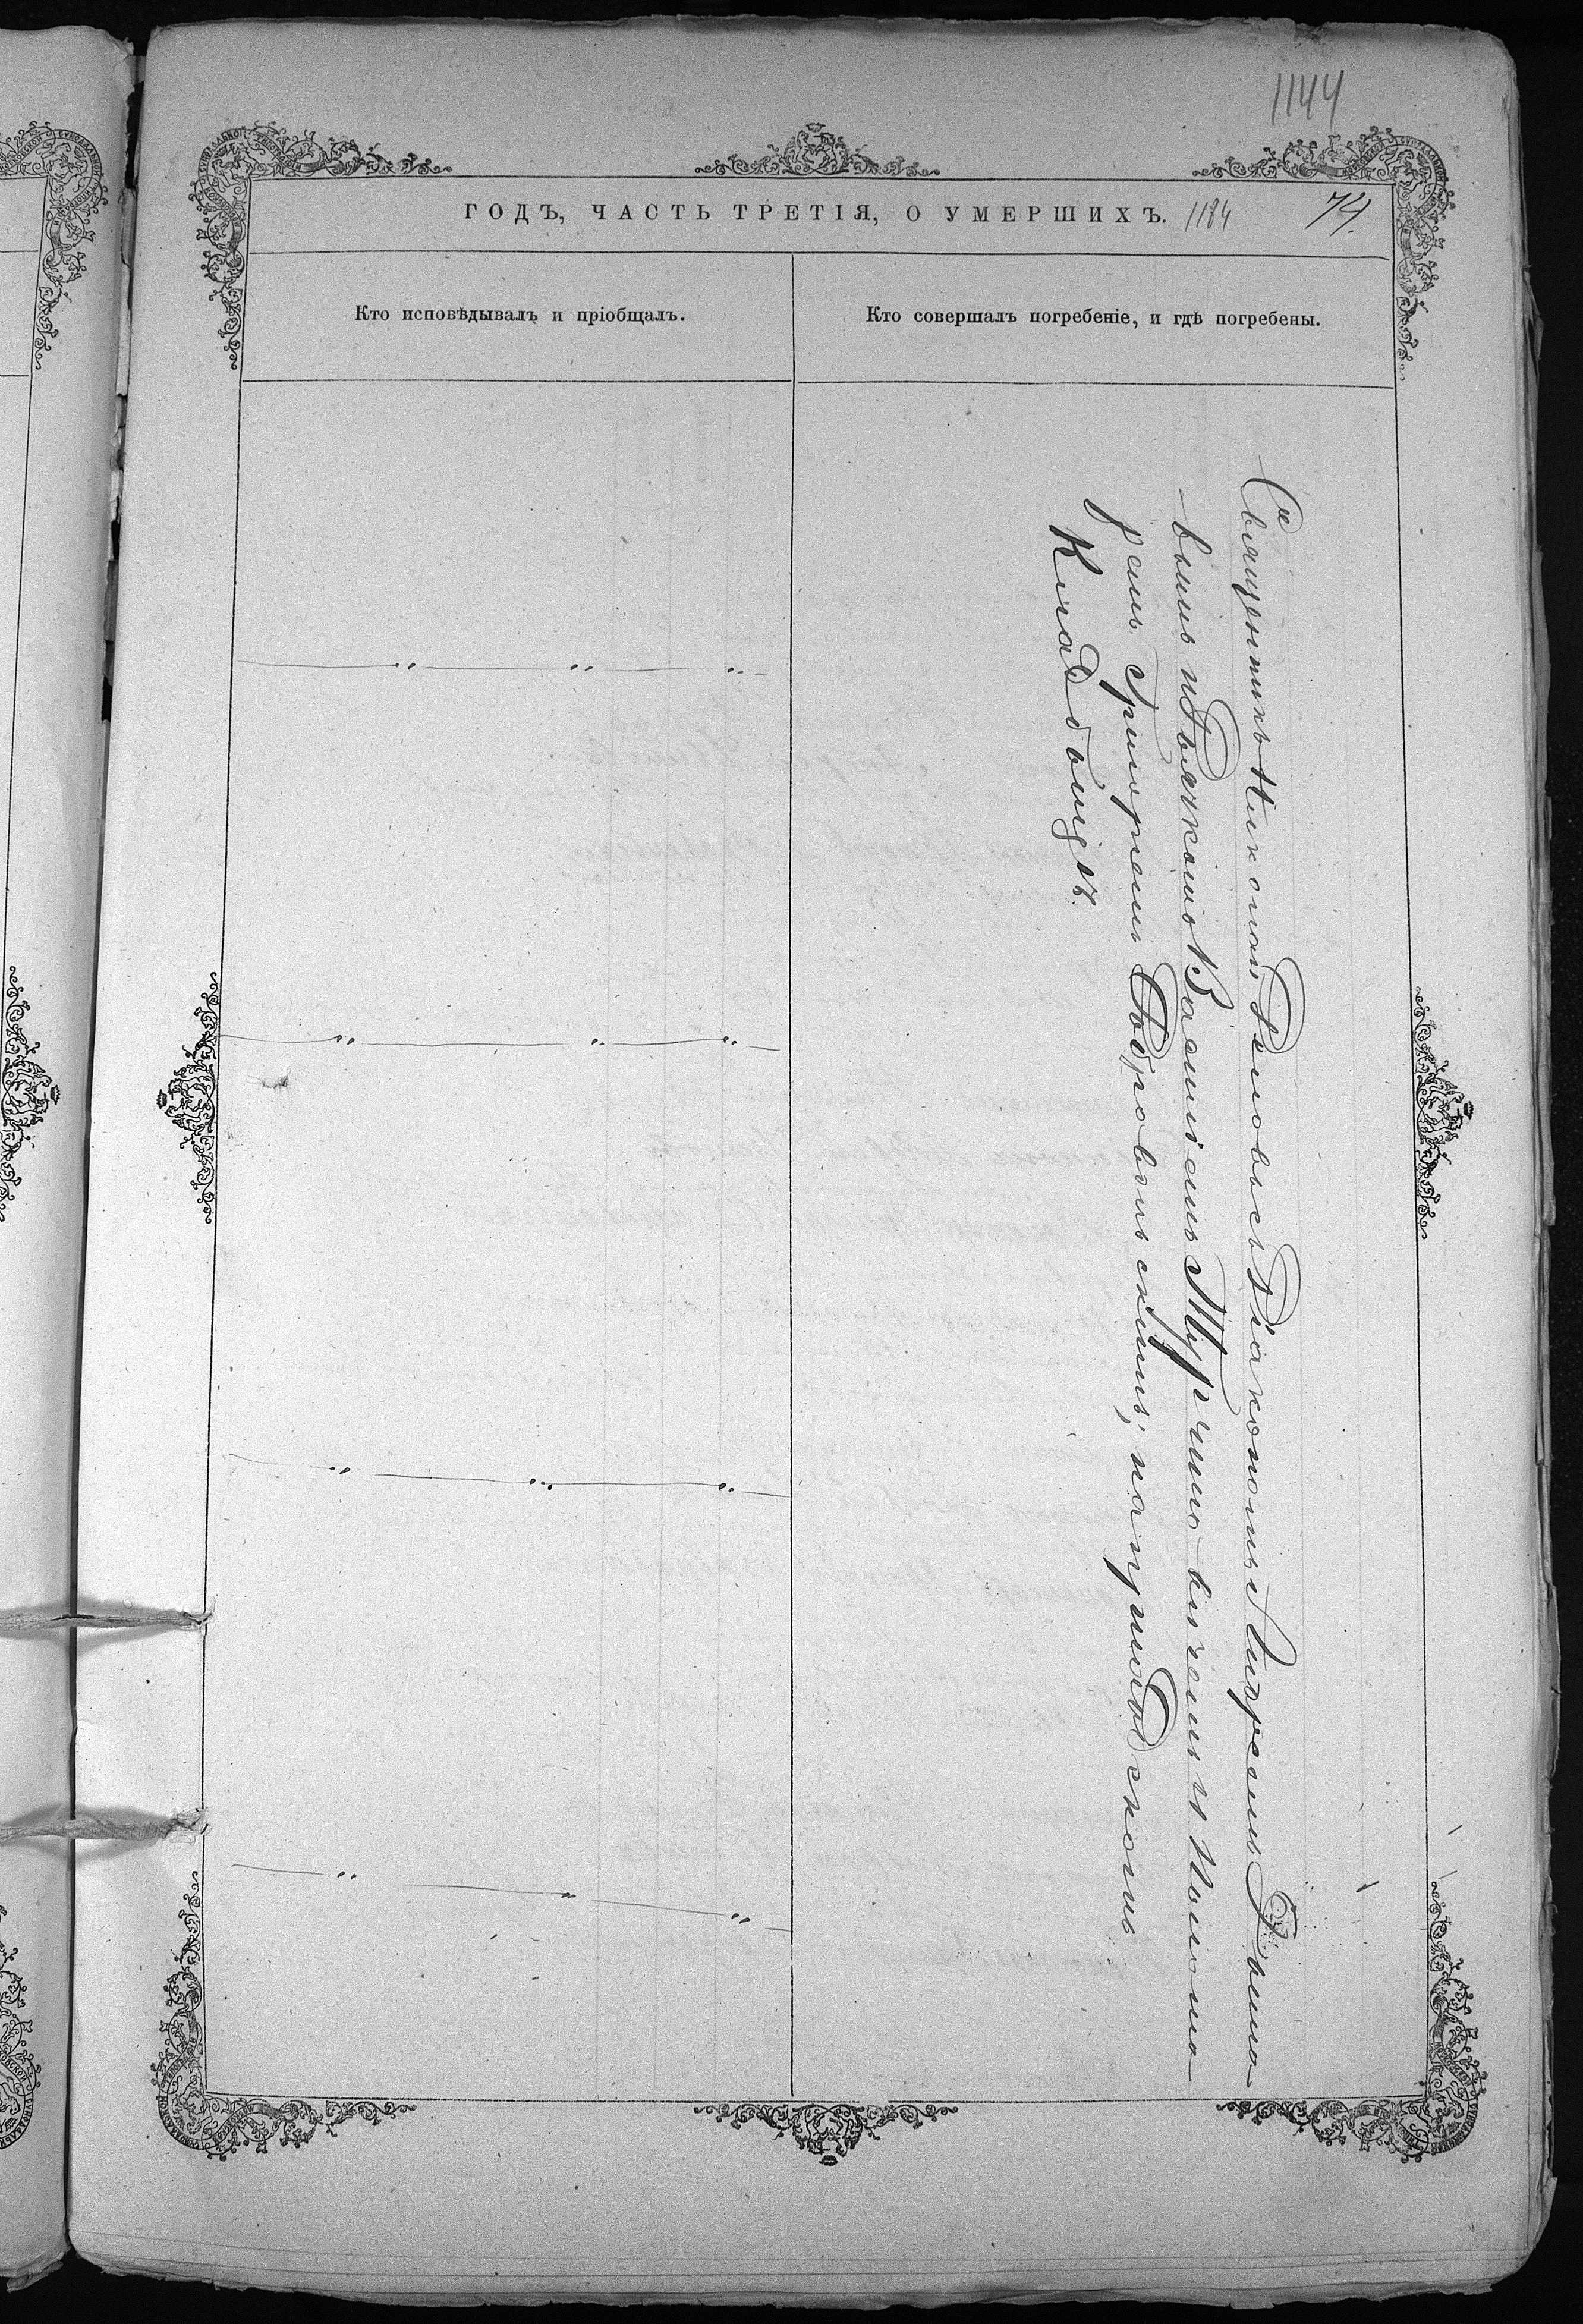 1144
ГОДЪ, ЧАСТЬ ТРЕТІЯ, О УМЕРШИХЪ. 1184 74.
Кто исповѣдывалъ и пріобщалъ.
Кто совершалъ погребеніе, и гдѣ погребены.
Священникъ Николай Бѣловъ съ Діакономъ Андреемъ
вымъ и Дьячкомъ Василіемъ и Понома-
ремъ Григоріемъ Добровольскимъ, на приходскомъ
Кладбищѣ.